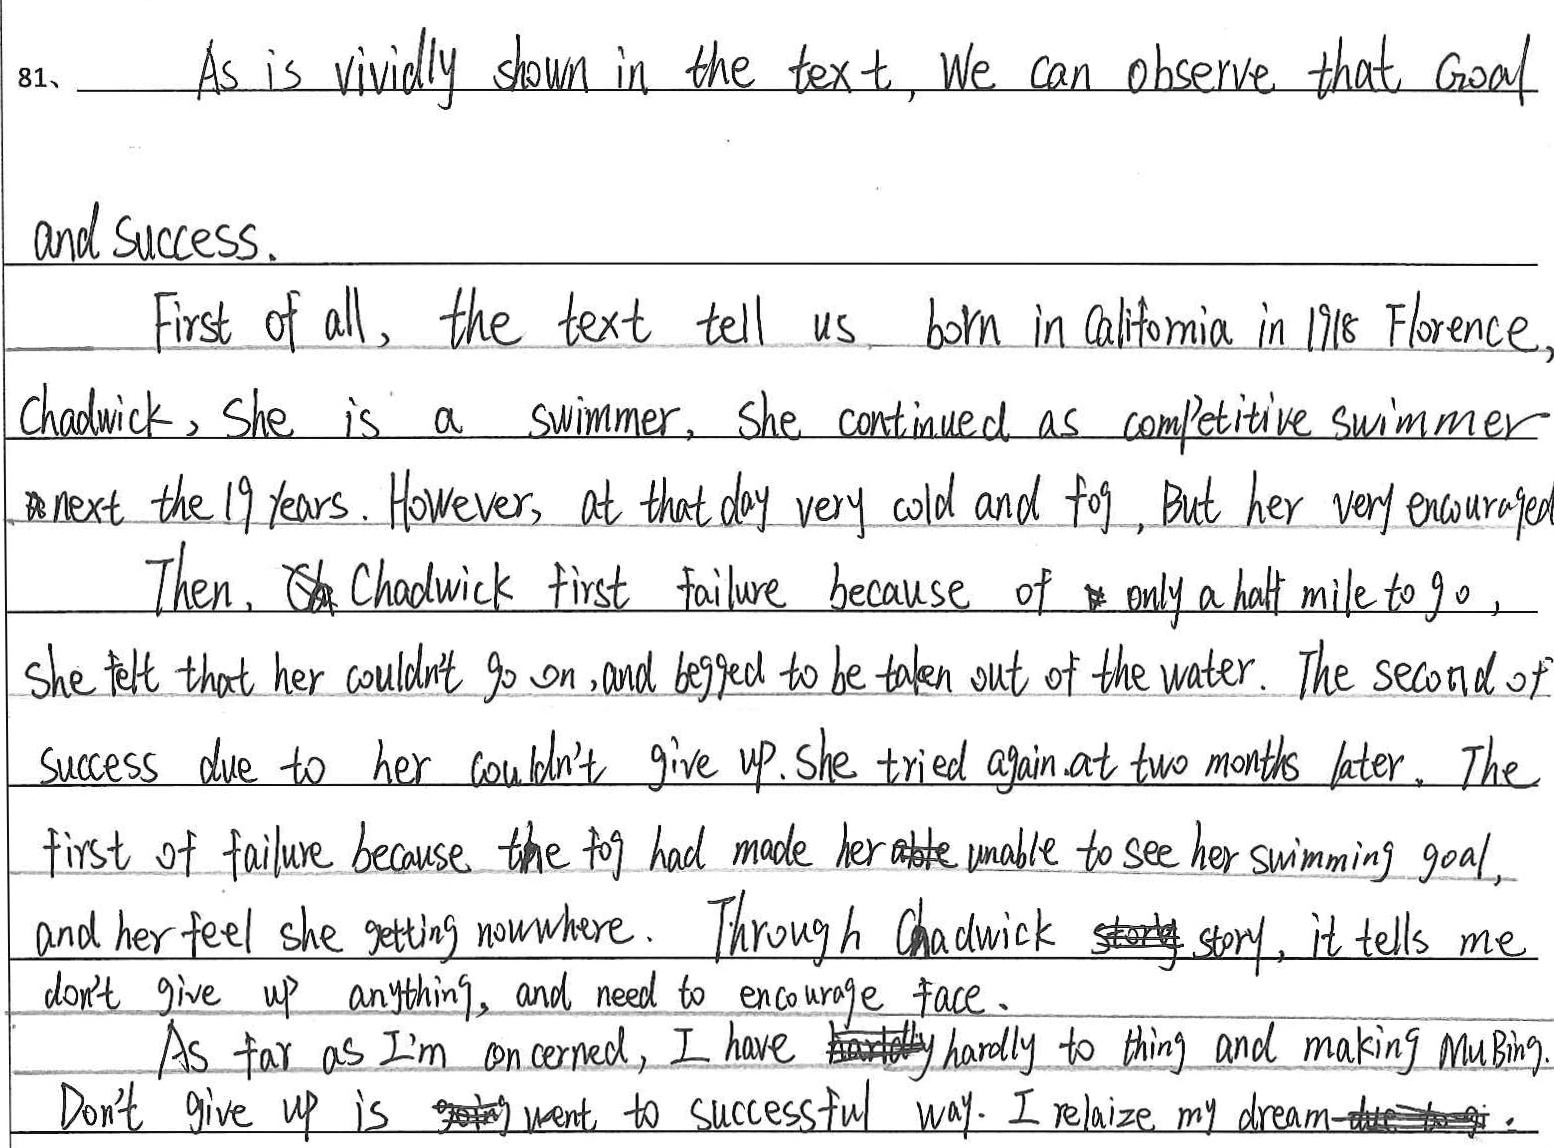 81、 As is vividly shown in the text, We can observe that Goal
and Success.
First of all, the text tell us born in California in 1918 Florence,
Chadwick, She is a swimmer, She continued as competitive swimmer
next the 19 Years. However, at that day very cold and fog, But her very encouraged
Then, Chadwick first failure because of only a half mile to go,
she felt that her couldn't go on, and begged to be taken out of the water. The second of
success due to her couldn't give up. She tried again.at two months later. The
first of failure because the fog had made her unable to see her swimming goal,
and her feel she getting nowwhere. Through Chadwick story, it tells me
don't give up anything, and need to encourage face.
As far as I'm concerned, I have hardly to thing and making MuBing.
Don't give up is went to successful way. I relaize my dream .